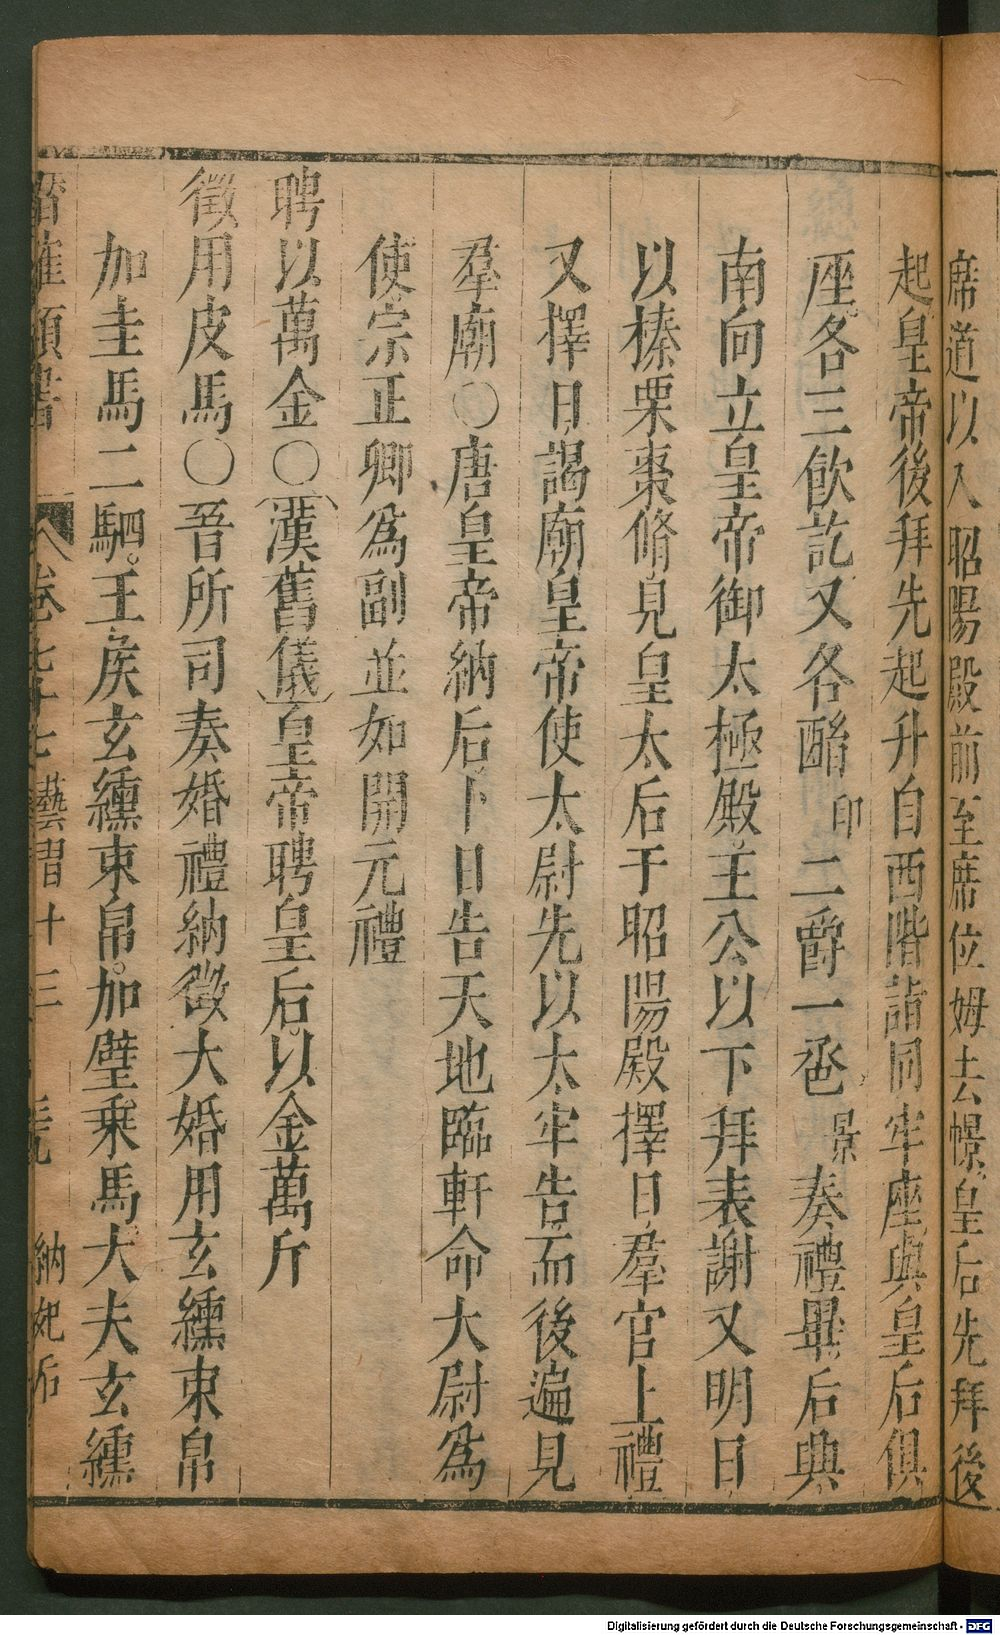 席道以入昭陽殿前至席位姆去幜皇后先拜後
起皇帝後拜先起升自西階詣同牢座與皇后俱
座各三飲訖又各酳印二爵一巹景奏禮畢后興
南向立皇帝御太極殿王公以下拜表謝又明日
以榛栗棗脩見皇太后于昭陽殿擇日羣官上禮
又擇日謁廟皇帝使太尉先以太牢告而後遍見
羣廟○唐皇帝納后卜日告天地臨軒命大尉爲
使宗正卿爲副並如開元禮
聘以萬金○漢舊儀皇帝聘皇后以金萬斤
徵用皮馬○晉所司奏婚禮納徵大婚用玄纁束帛
加圭馬二駟。王矦玄纁束帛。加璧乗馬大夫玄纁
卷七十七 藝習十三 納妃后
Digitalisierung gefördert durch die Deutsche Forschungsgemeinschaft - DFG